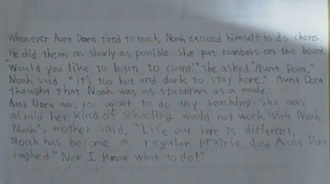 Whenever Aunt Dora tired to teach, Noah excused himself to do chores.
He did them as slowly as posible. she put numbers on the board
"Would you like to learn to count?" she asked "Aunt Dora,"
Noah said "it's too hot and dark to stay here." Aunt Dora
thought that Noah was as stubborns as a mule.
Aunt Dora was too upset to do any teaching. she was
afraid her kind of schooling would not work with Noah
Noah's mother said, "Life out here is different.
Noah has become a regular prairie dog. Aunt Dora
laughed" Now I know what to do!"